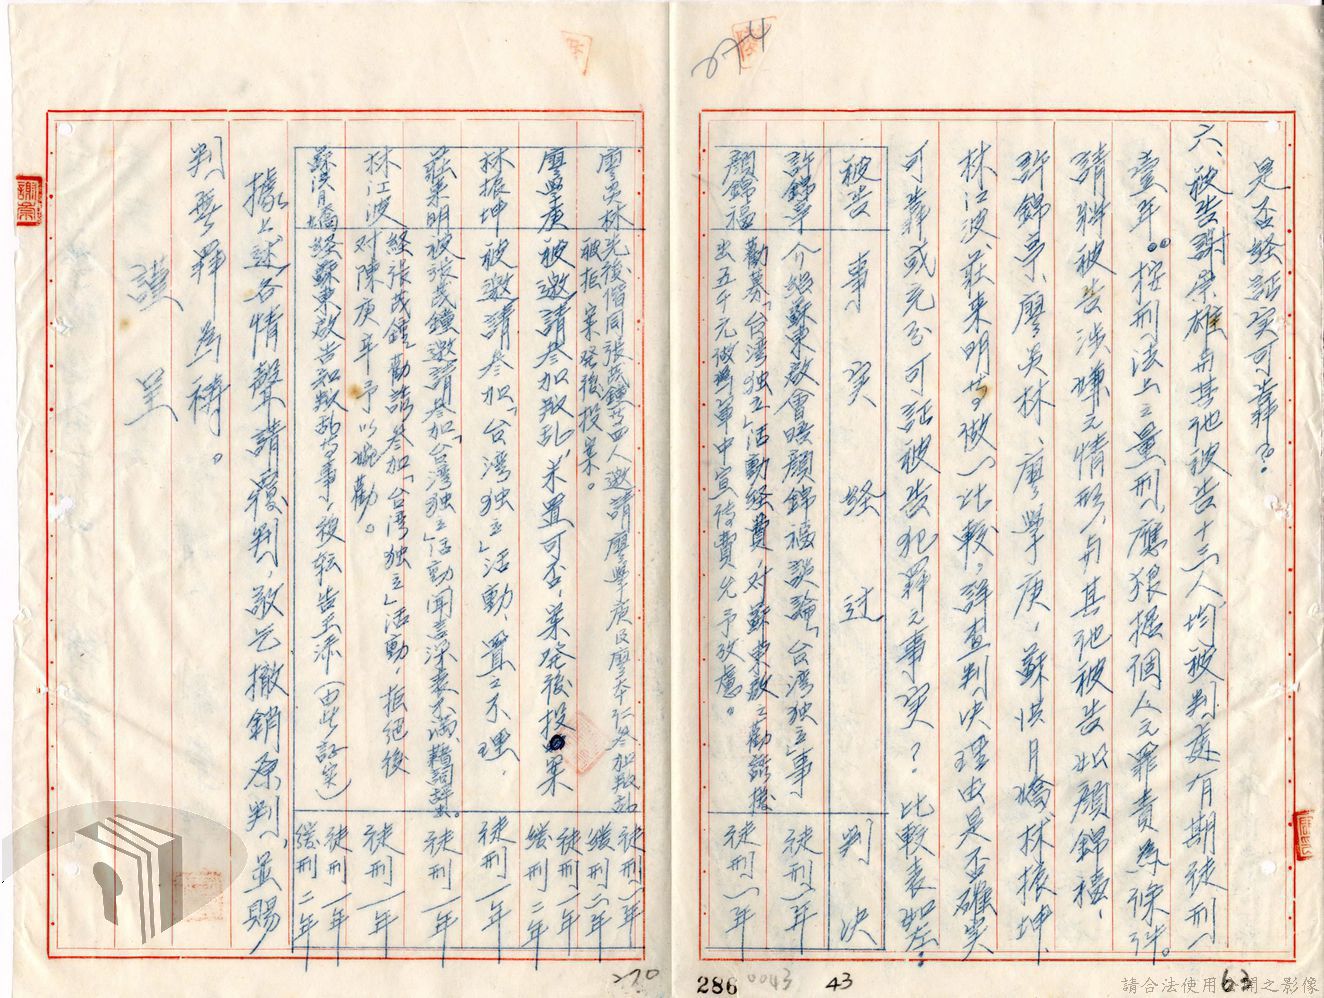 是否経証実可靠?
六、被告謝崇雄与其他被告十三人均被判處有期徒刑一
壹年。按刑法上之量刑,應根據個人之罪責為條件。
請將被告涉嫌之情形,与其他被告如顔錦福、
許錦亭、廖吳林、廖學庚,蘇洪月嬌、林振坤、
林江波、莊來明等做一比較,詳查判决理由是否確実
可靠或充分可証被告犯罪之事実?比較表如左:
被告 事実経过 判决
許錦亭 介紹蘇東啟會晤顔錦福談論「台湾独立」事 徒刑一年
顔錦福 勸募「台湾独立」活動経費,对蘇東啟之勸誘後出五千元做為軍中宣传費允予攷慮。 徒刑一年
廖吳林 先後偕同張茂鐘等四人邀請廖學庚及廖本仁参加叛乱被拒,案発後投案。 徒刑一年 缓刑二年
廖學庚 被邀請参加叛乱,未置可否,案発後投案 徒刑一年 缓刑二年
林振坤 被邀請参加「台湾独立」活動,置之不理, 徒刑一年
莊來明 被張茂鐘邀請参加「台湾独立」活動聞言深表不滿,藉詞辞去。 徒刑一年
林江波 経張茂鐘勸誘参加「台湾独立」活動,拒绝後对陳庚辛予以婉勸。 徒刑一年
蘇洪月嬌 経蘇東啟告知叛乱等事,被転告王添(由此証実) 徒刑一年 缓刑二年
據上述各情聲請覆判,敬乞撤銷原判,並賜
判無罪為禱。
謹呈
274
270
286
0043
43
63
請合法使用公開之影像